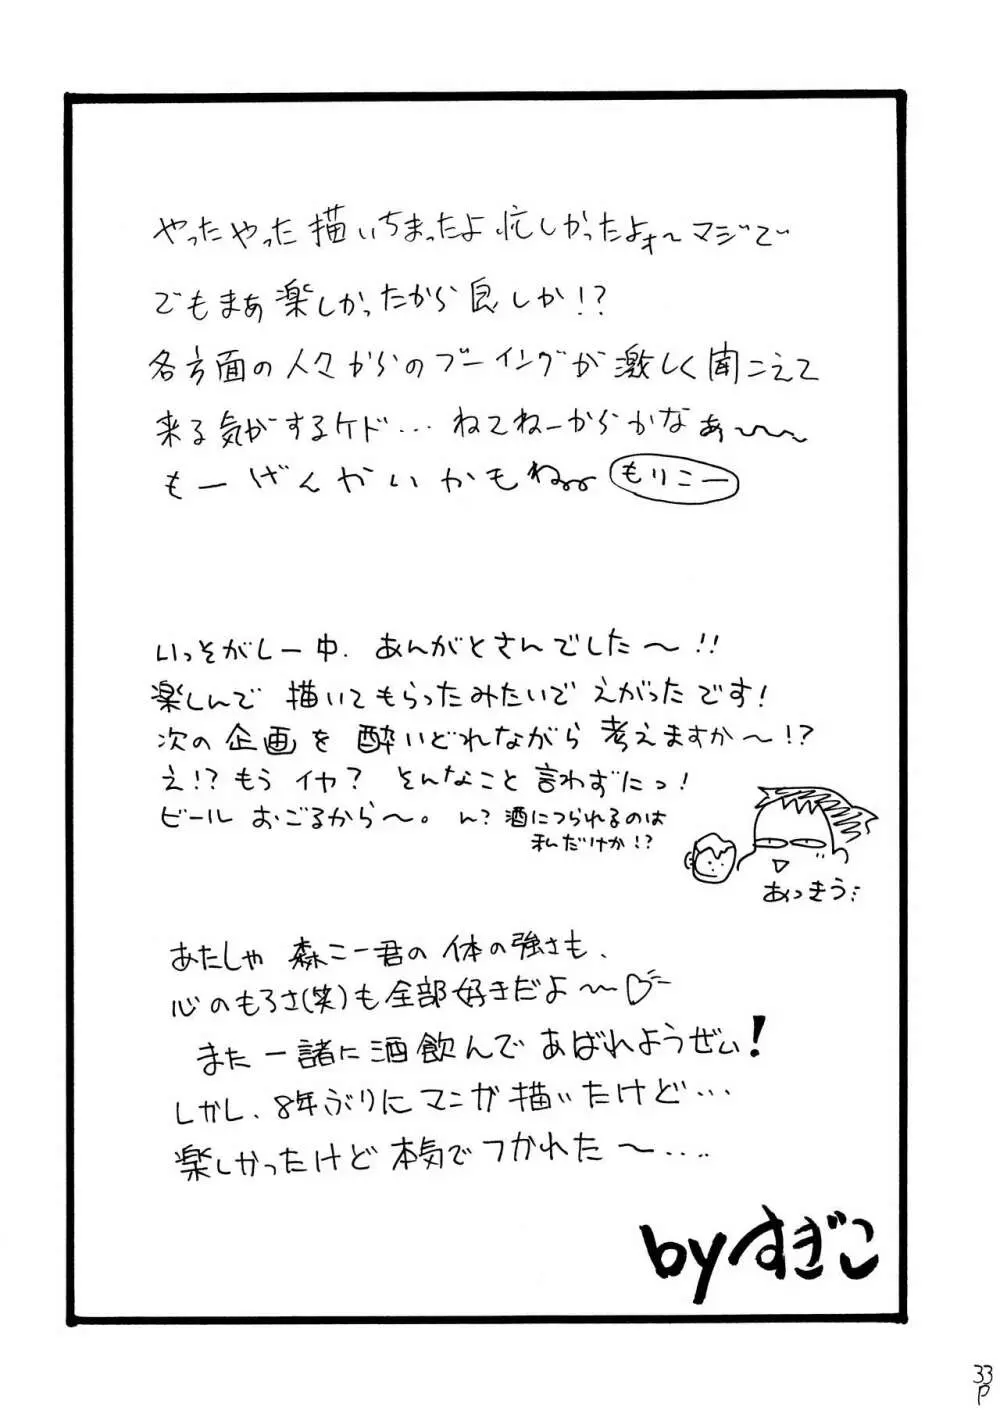 やったやった描いちまったよ忙しかったよォ〜マジで
でもまぁ楽しかったから良しか!?
各方面の人々からのブーイングが激しく聞こえて
来る気がするケド… ねてねーからかなぁ〜〜
もーげんかいかもね
もりこー
いっそがしー中、あんがとさんでした〜!!
楽しんで 描いてもらったみたいで えがったです!
次の企画を 酔いどれながら 考えますか〜!?
え!? もう イヤ? そんなこと 言わずにっ!
ビール おごるから〜。 ん? 酒につられるのは
私だけか!?
あっきう
あたしゃ 森こー君の 体の強さも、
心のもろさ(笑)も全部好きだよ〜♡
また 一諸に 酒飲んで あばれようぜぃ!
しかし、8年ぶりにマンガ描いたけど…
楽しかったけど 本気でつかれた〜‥‥
byすぎこ
33
P